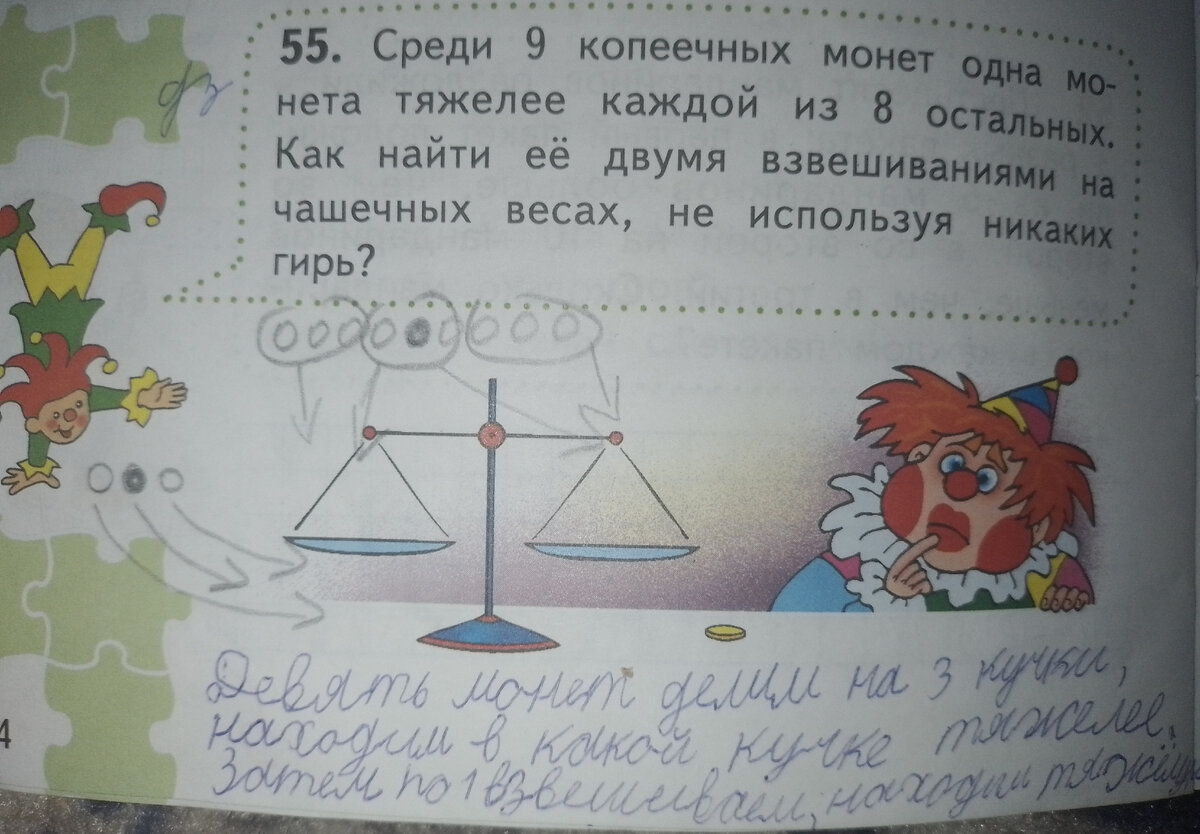 55. Среди 9 копеечных монет одна мо-
нета тяжелее каждой из 8 остальных.
Как найти её двумя взвешиваниями на
чашечных весах, не используя никаких
гирь?
дз
4
Девять монет делим на 3 кучки,
находим в какой кучке тяжелее.
Затем по 1 взвешиваем, находим